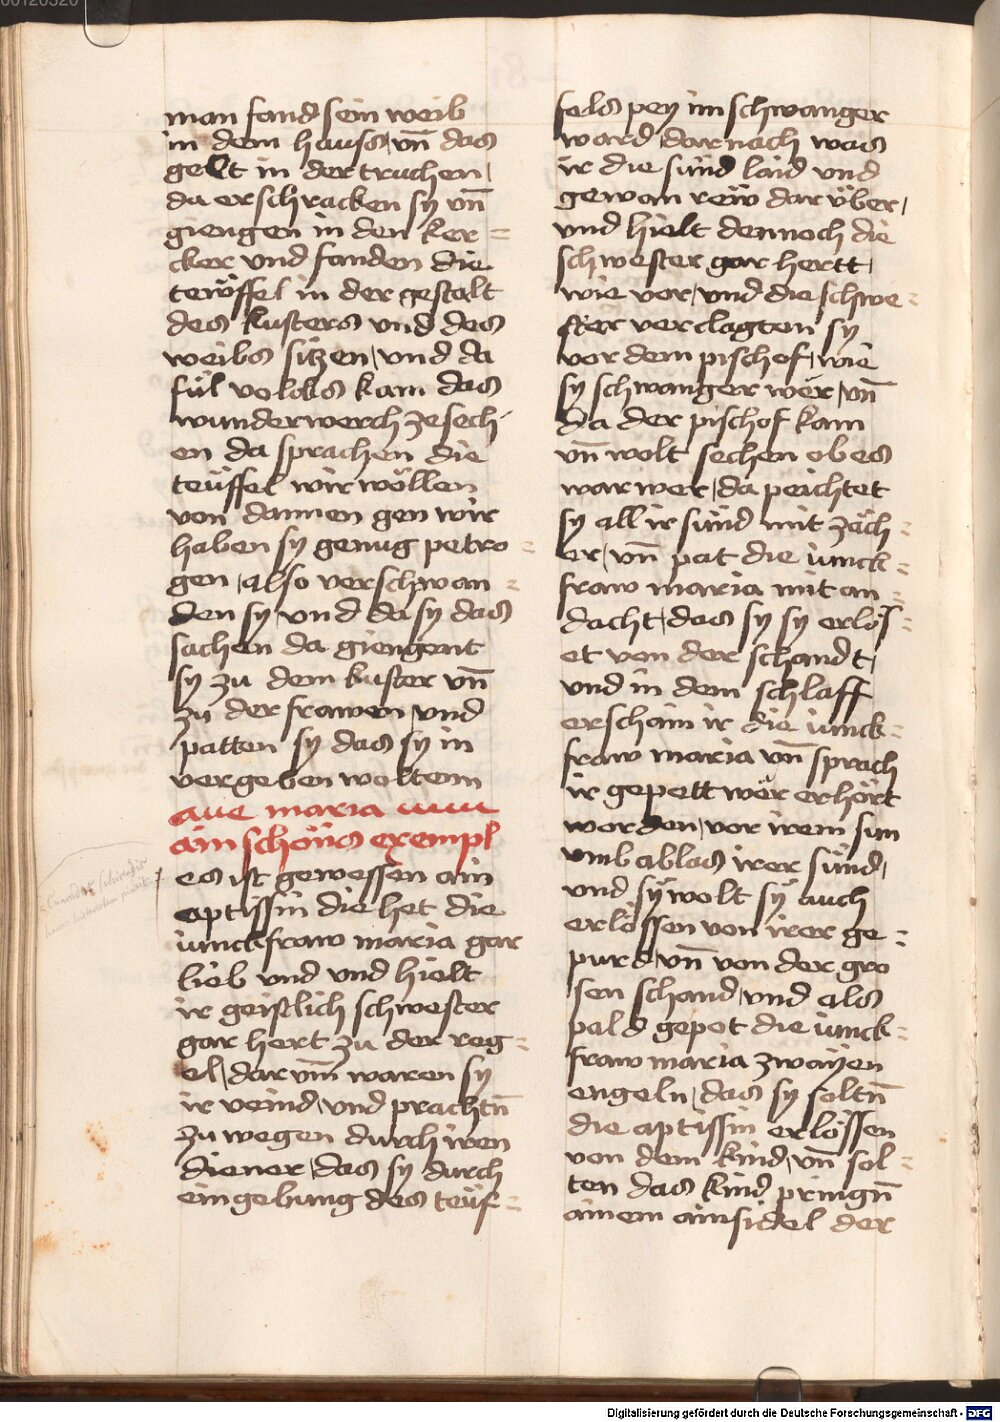 man fand sein weib
in dem hauss, vn̄ das
gelt in der truchen,
da erschracken sy vn̄
giengen in den ker=
cker vnd fanden die
teẅffel in der gestalt
des kusters vnd des
weibs sitzen, vnd da
fül volcks kam das
wunderwerch ze sech-
en da sprachen die
teüffel wir wöllen
von dannen gen wir
haben sy genug petro=
gen, also verschwan=
den sy, vnd da sy das
sachen da giengent
sy zu dem kuster vn̄
zu der frawen, vnd
patten sy das sy in
vergeben woltenn
aue maria
ain schöns exempl
es ist gewessen ain
aptissin die het die
iunckfraw maria gar
lieb vnd vnd hielt
ir geistlich schwester
gar hert zu der reg=
el, darvm̄ waren sy
ir veind, vnd prachtn̄
zu wegen durch iren
diener, das sy durch
ein gebung des teüf=
fels pey im schwanger
ward, darnach was
ir die sünd laid vnd
gewan reẅ darüber,
vnd hielt dennoch die
schwester gar hertt,
wie vor, vnd die schwe=
ster verclagten sy
vor dem pischof, wie
sy schwanger wër, vn̄
da der pischof kam
vn̄ wolt sechen ob es
war wer, da peichtet
sy all ir sünd mit zäch=
er, vn̄ pat die iunck=
fraw maria mit an=
dacht, das sy sy erlös=
et von der schandt,
vnd in dem schlaff
erschain ir die iunck=
fraw maria vn̄ sprach
ir gepett wër erhört
worden, vor irem sun
vmb ablas irer sünd,
vnd sy wolt sy auch
erlössen von irer ge=
purd, vn̄ von der gro
sen schand, vnd als
pald gepot die iunck=
fraw maria zwayen
engeln, das sy soltn̄
die aptissin erlössen
von dem kind, vn̄ sol=
ten das kind pringn̄
ainem ainsidel der
Digitalisierung gefördert durch die Deutsche Forschungsgemeinschaft - DFG